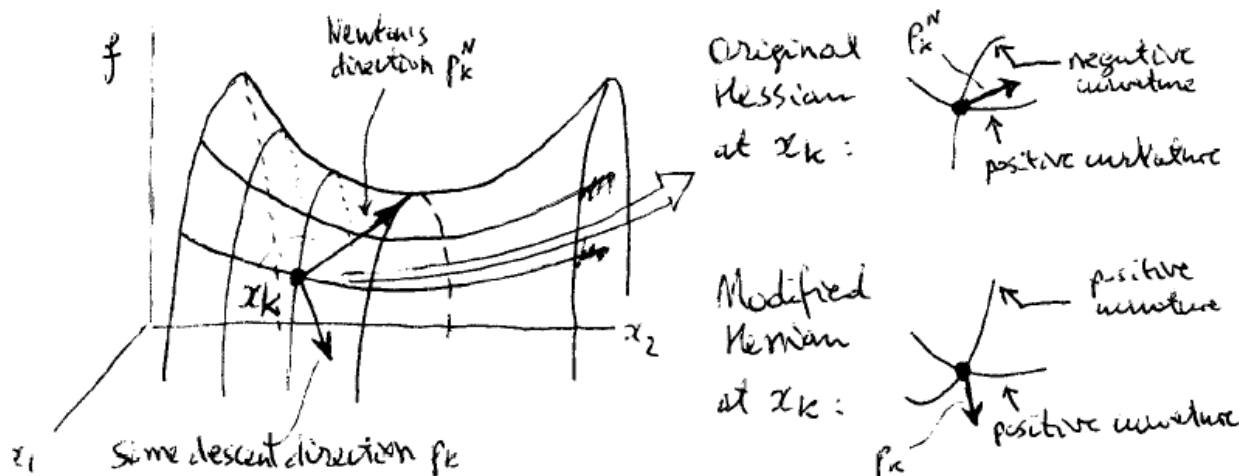 f
Newton's
direction p_k^N
x_k
x_2
x_1
Some descent direction p_k
Original
Hessian
at x_k :
p_k^N
negative
curvature
positive curvature
Modified
Hessian
at x_k :
positive
curvature
positive curvature
p_k